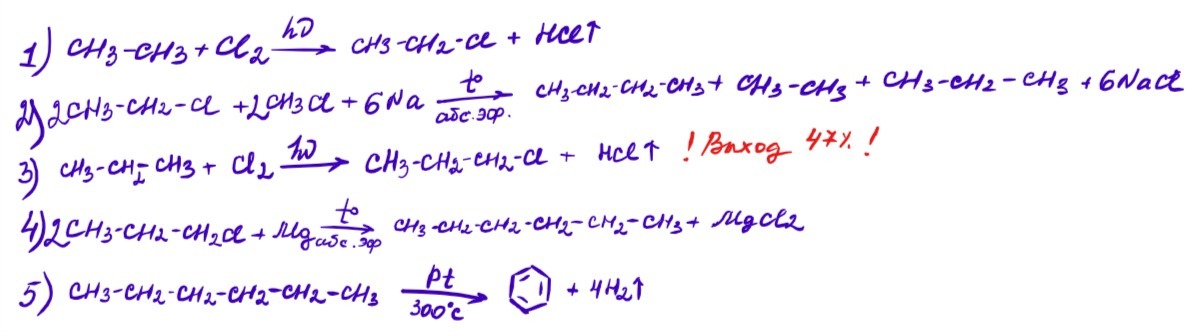 1) CH3-CH3 + Cl2 hν → CH3-CH2-Cl + HCl↑
2) 2CH3-CH2-Cl + 2CH3Cl + 6Na t° → абс. эфр. CH3-CH2-CH2-CH3 + CH3-CH3 + CH3-CH2-CH3 + 6NaCl
3) CH3-CH2-CH3 + Cl2 hν → CH3-CH2-CH2-Cl + HCl↑ ! Выход 47% !
4) 2CH3-CH2-CH2Cl + Mg t° → абс. эфр CH3-CH2-CH2-CH2-CH2-CH3 + MgCl2
5) CH3-CH2-CH2-CH2-CH2-CH3 Pt → 300°C + 4H2↑